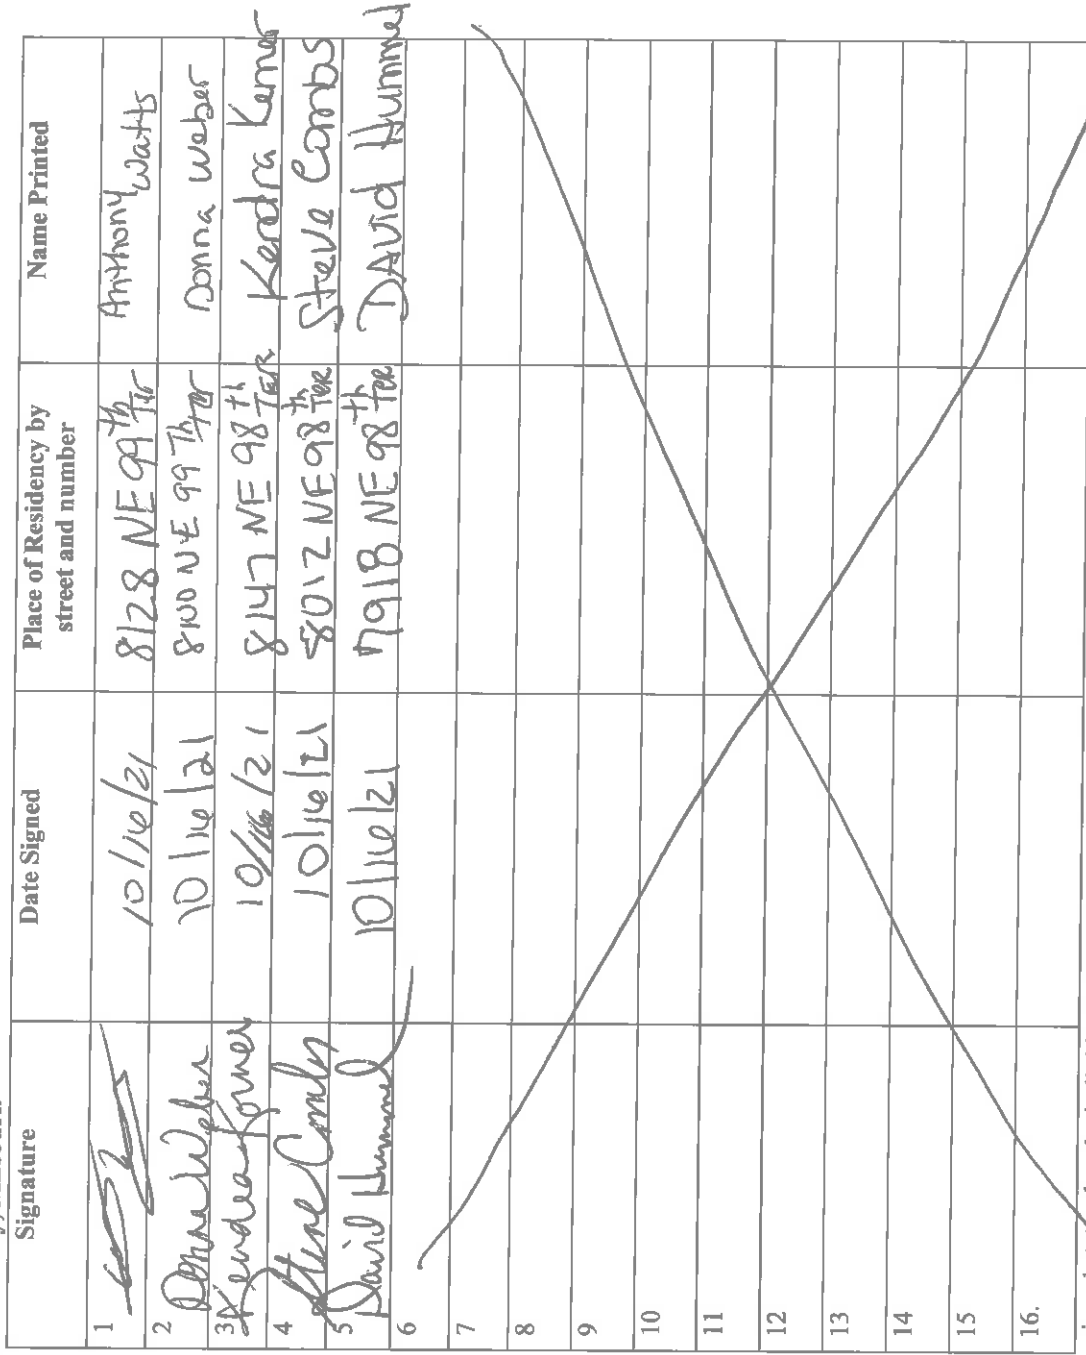 Signature Date Signed Place of Residency by street and number Name Printed
1 10/16/21 8128 NE 99th Ter Anthony Watts
2 Donna Weber 10/16/21 8100 NE 99Th Ter Donna Weber
3 10/16/21 8147 NE 98th TER Kendra Kerner
4 Steve Combs 10/16/21 8012 NE 98th TER Steve Combs
5 David Hummel 10/16/21 7918 NE 98th Ter DAVID Hummel
6
7
8
9
10
11
12
13
14
15
16.